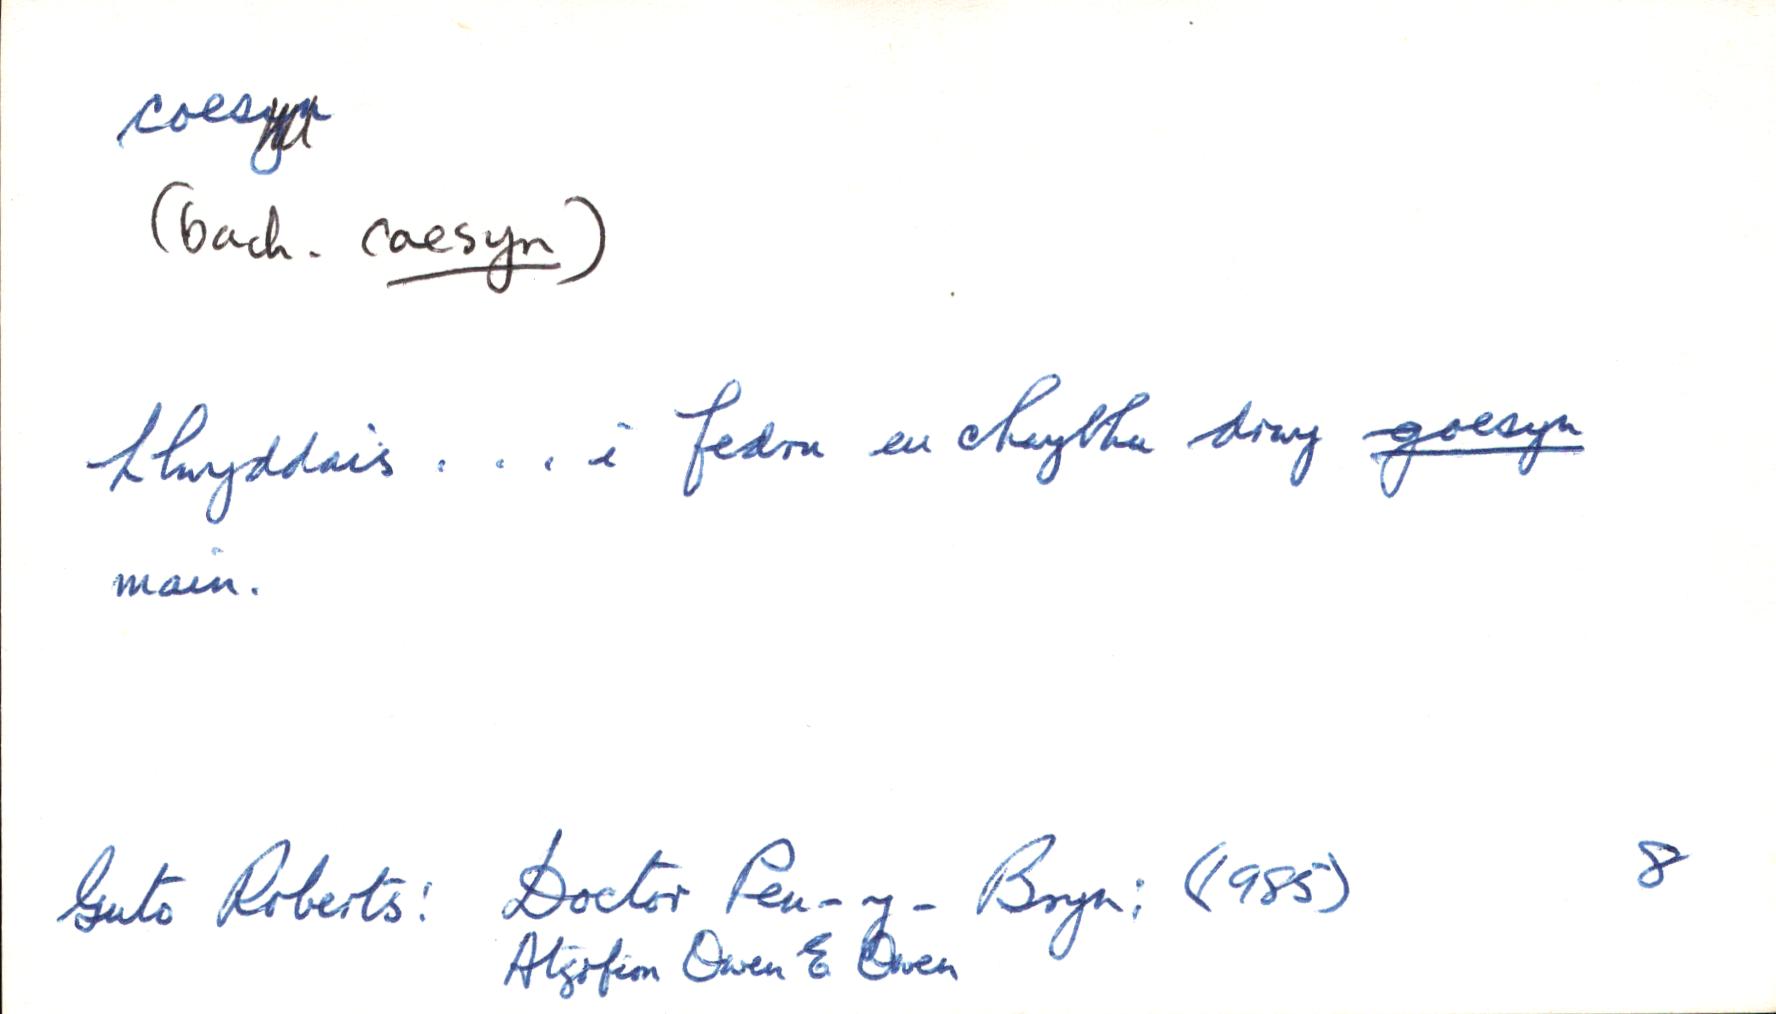 coesyn
(bach. coesyn)
Llwyddais . . . i fedru eu chwythu drwy goesyn
main.
Guto Roberts: Doctor Pen-y-Bryn; (1985) 8
Atgofion Owen E Owen